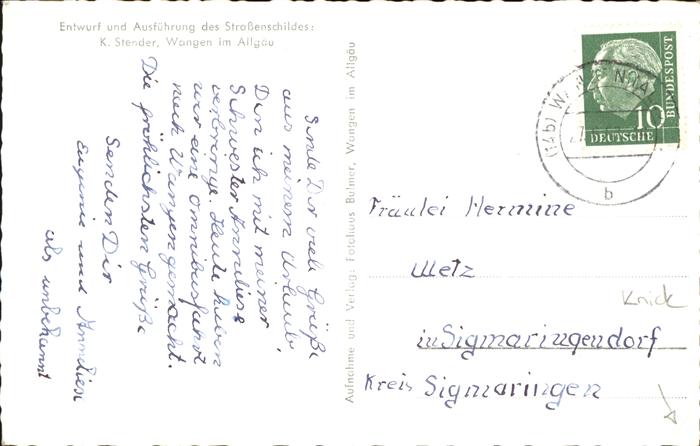 Entwurf und Ausführung des Straßenschildes:
K. Stender, Wangen im Allgäu
Sende Dir viele Grüße
aus meinem Urlaub,
Den ich mit meiner
Schwester Anneliese
verbringe. Heute haben
wir eine Omnibusfahrt
nach Wangen gemacht.
Die fröhlichsten Grüße
Senden Dir
Eugenie und Anneliese
als unbekannt
Aufnahme und Verlag: Fotohaus Bulmer, Wangen im Allgäu
(14b) WANGEN
b
10
DEUTSCHE
BUNDESPOST
Fräulei Hermine
Metz
in Sigmaringendorf
Kreis Sigmaringen
Knick